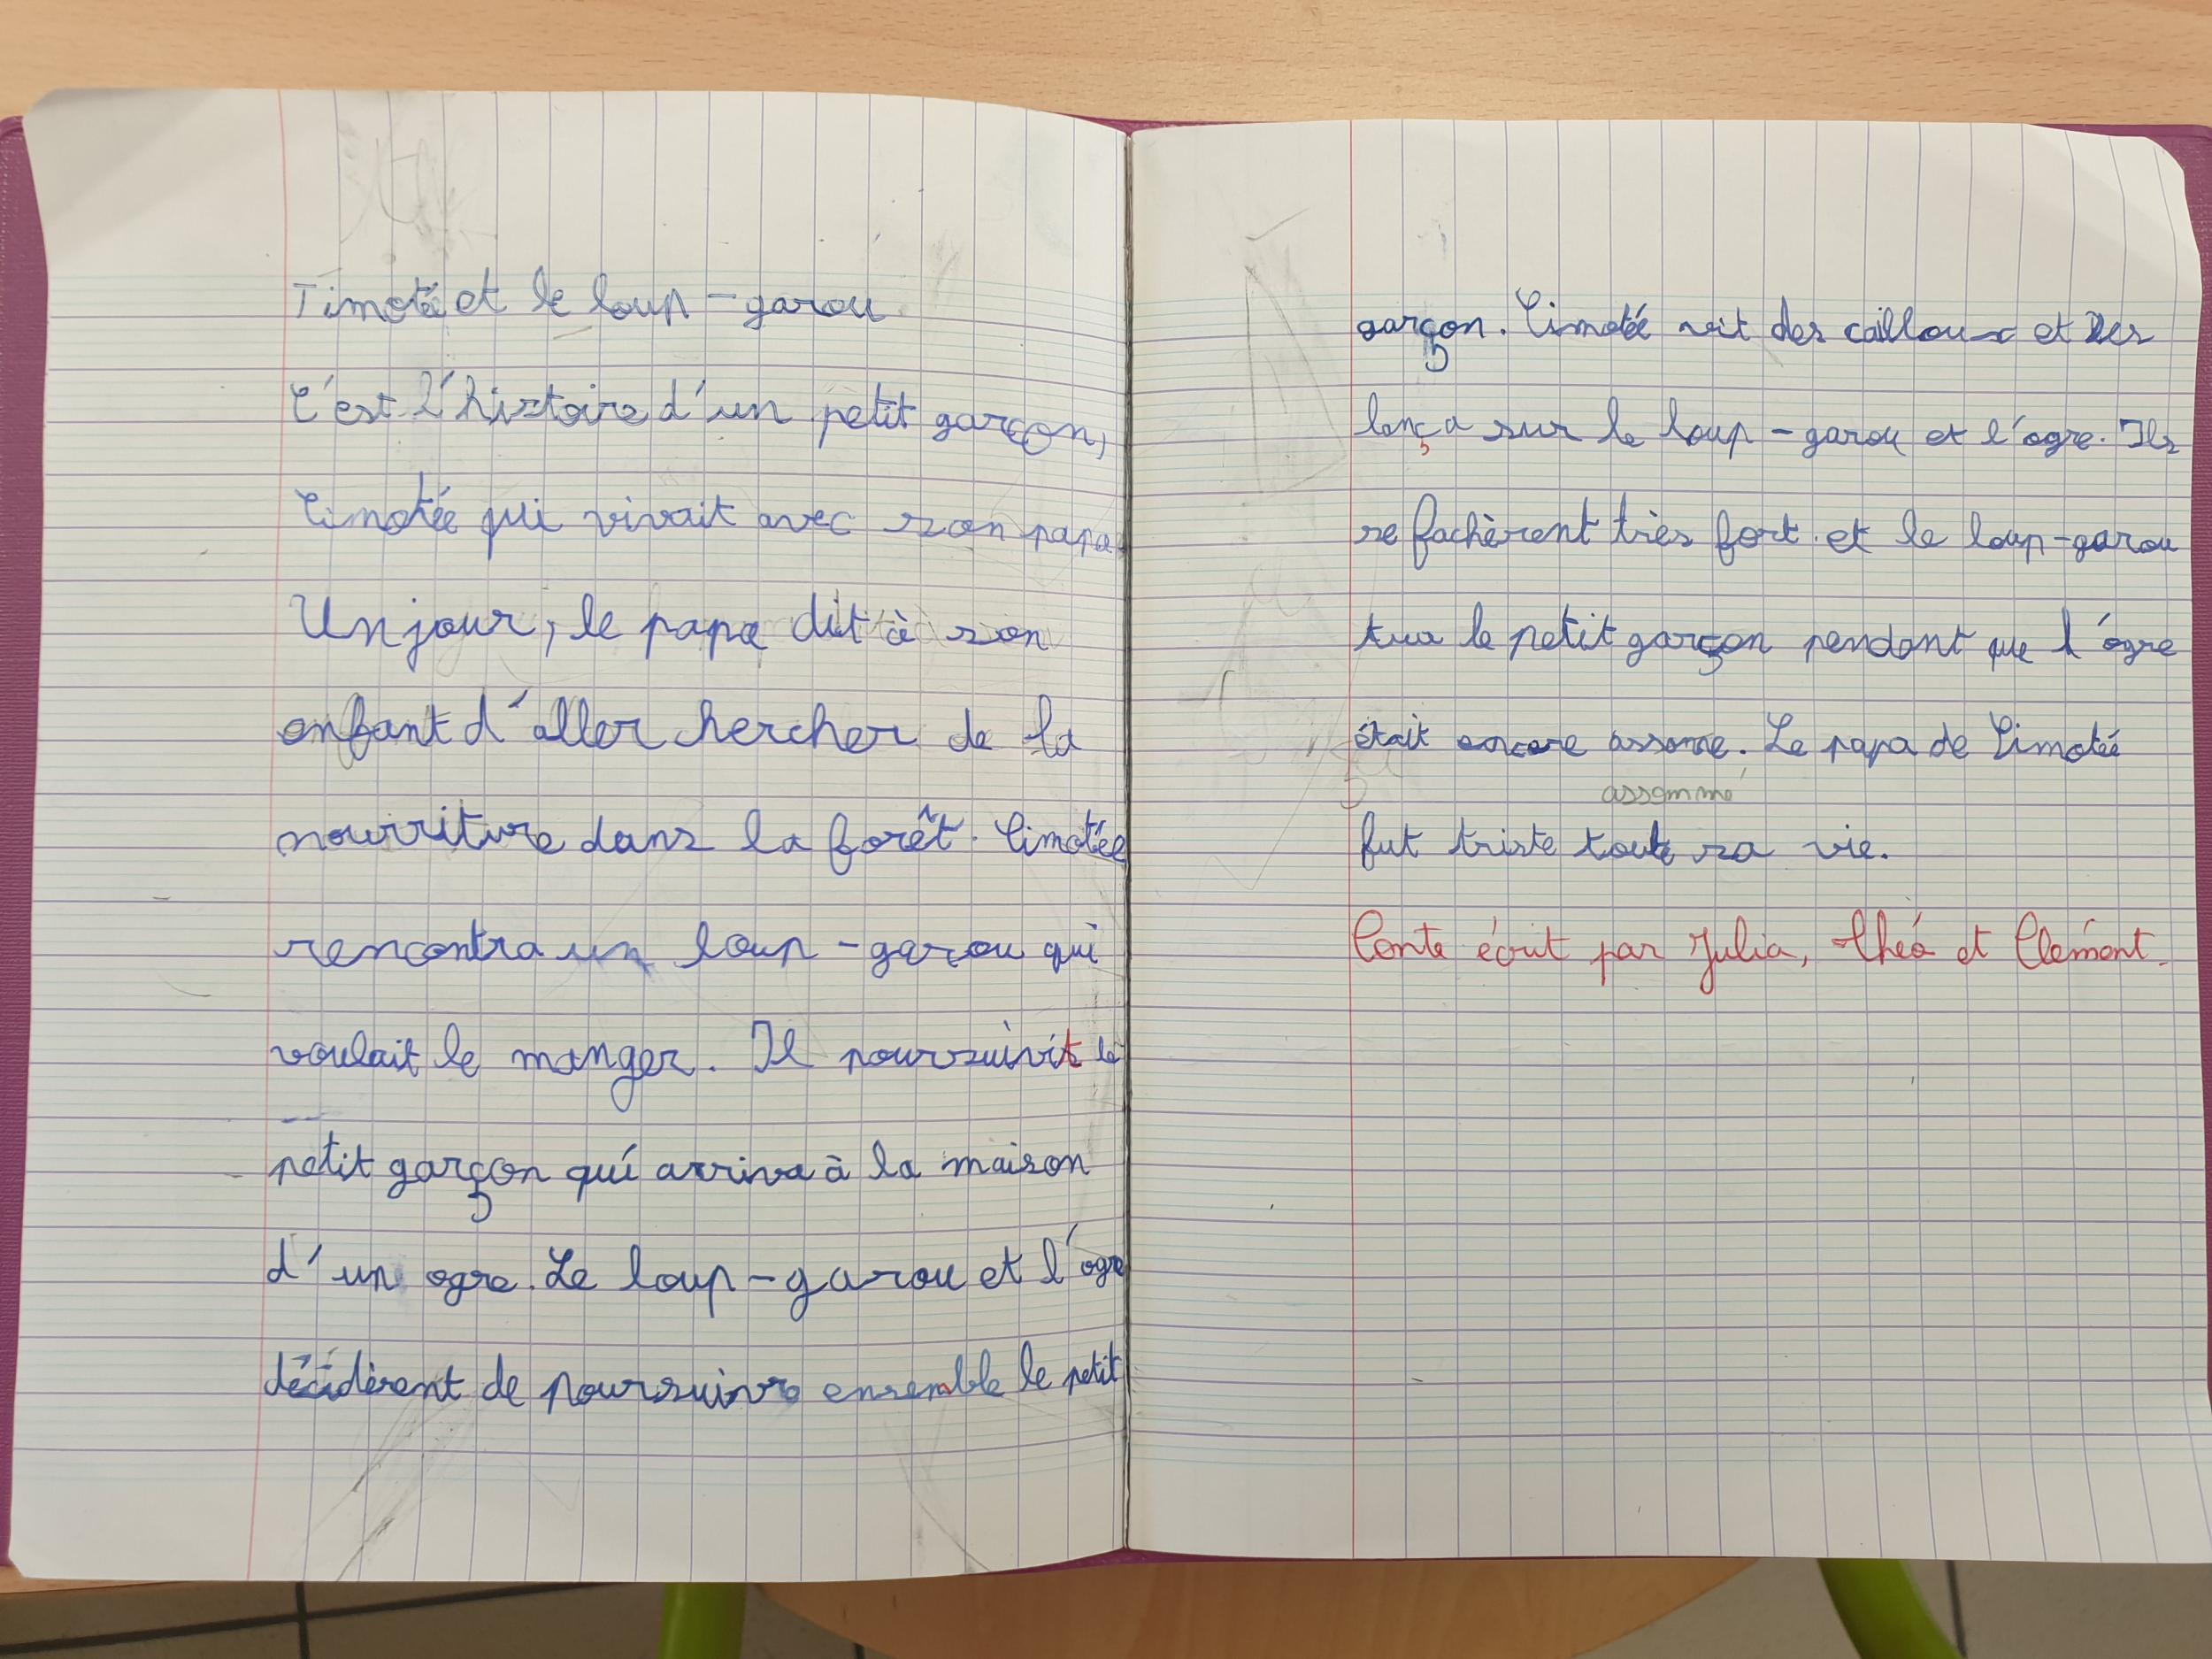 Timoté et le loup-garou
C'est l'histoire d'un petit garçon,
Timotée qui vivait avec son papa.
Un jour, le papa dit à son
enfant d'aller chercher de la
nourriture dans la forêt. Timotée
rencontra un loup-garou qui
voulait le manger. Il poursuivit le
petit garçon qui arriva à la maison
d'un ogre. Le loup-garou et l'ogre
décidèrent de poursuivre ensemble le petit
garçon. Timotée vit des cailloux et les
lança sur le loup-garou et l'ogre. Ils
se fachèrent très fort. et le loup-garou
tua le petit garçon pendant que l'ogre
était encore assome. Le papa de Timotée
assommé
fut triste toute sa vie.
Conte écrit par Julia, Théo et Clément.